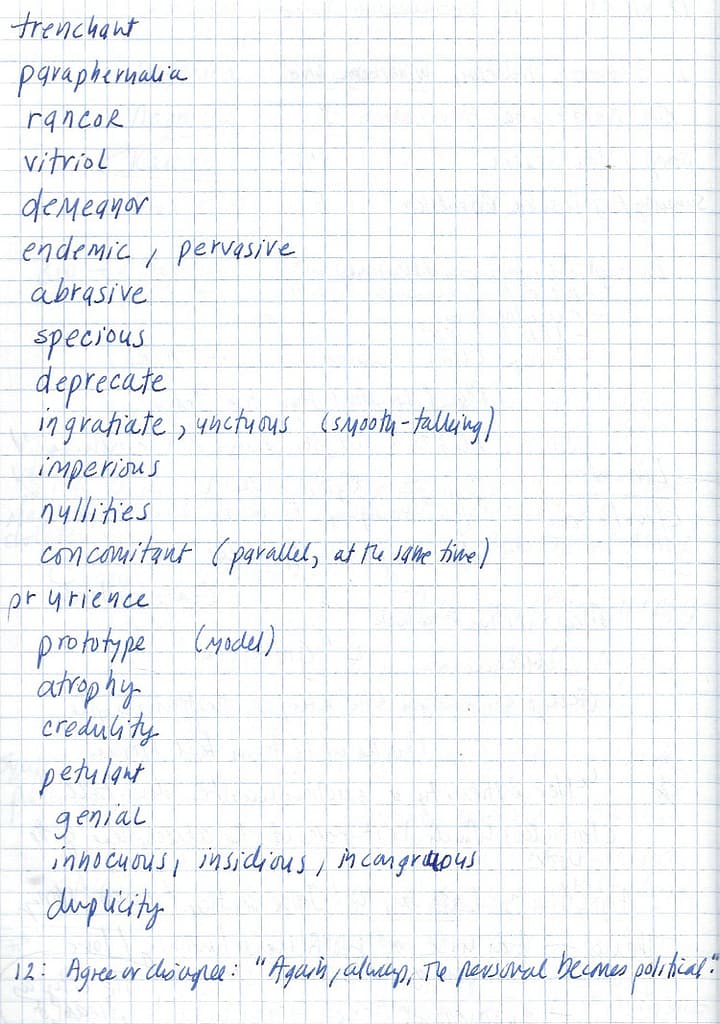 trenchant
paraphernalia
rancor
vitriol
demeanor
endemic, pervasive
abrasive
specious
deprecate
ingratiate, unctuous (smooth-talking)
imperious
nullities
concomitant (parallel, at the same time)
prurience
prototype (model)
atrophy
credulity
petulant
genial
innocuous, insidious, incongruous
duplicity
12: Agree or disagree: "Again, always, the personal becomes political."